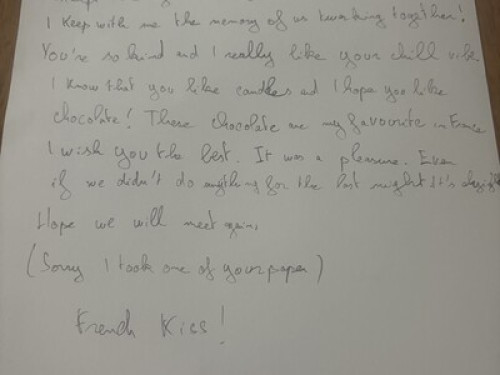 I keep with me the memory of us twerking together!
You're so kind and I really like your chill vibe.
I know that you like candles and I hope you like
chocolate! These chocolate are my favourite in France
I wish you the best. It was a pleasure. Even
if we didn't do anything for the last night it's okay
Hope we will meet again,
(Sorry I took one of your paper)
French Kiss!